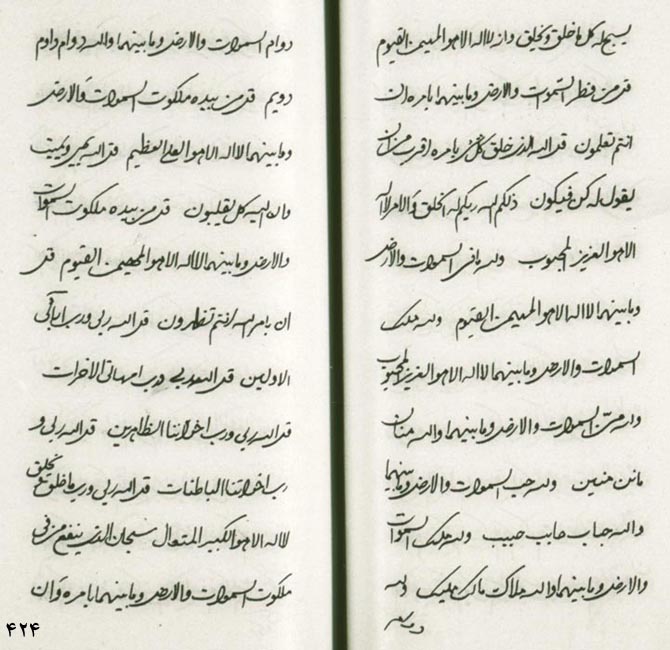 یسبح له کل ما خلق و یخلق و انه لا اله الا هو المهیمن القیوم
قل من فطر السموات والارض وما بینهما بامره ان
انتم تعلمون قل الله الذی خلق کلشئ بامره اقرب من ان
یقول له کن فیکون ذلکم الله ربکم له الخلق والامر لا اله
الا هو العزیز المحبوب ولله باقی السموات والارض
وما بینهما لا اله الا هو المهیمن القیوم ولله ملک
السموات والارض وما بینهما لا اله الا هو العزیز المحبوب
ولله من السموات والارض وما بینهما والله منان
مانن منین ولله حب السموات والارض وما بینهما
والله حباب حابب حبیب ولله ملک السموات
والارض وما بینهما والله ملاک مالک ملیک ولله
دوام السموات والارض وما بینهما والله دوام داوم
دویم قل من بیده ملکوت السموات والارض
وما بینهما لا اله الا هو العلی العظیم قل الله یحیی ویمیت
وان الیه کل یقلبون قل من بیده ملکوت السموات
والارض وما بینهما لا اله الا هو المهیمن القیوم قل
ان بامر الله انتم تظهرون قل الله ربی ورب ابائی
الاولین قل الله ربی ورب امهاتی الاخرات
قل الله ربی ورب اخواننا الظاهرین قل الله ربی و
رب اخواتنا الباطنات قل الله ربی ورب ما خلق و یخلق
لا اله الا هو الکبیر المتعال سبحان الذی من فی
ملکوت السموات والارض وما بینهما بامره وان
۴۲۴